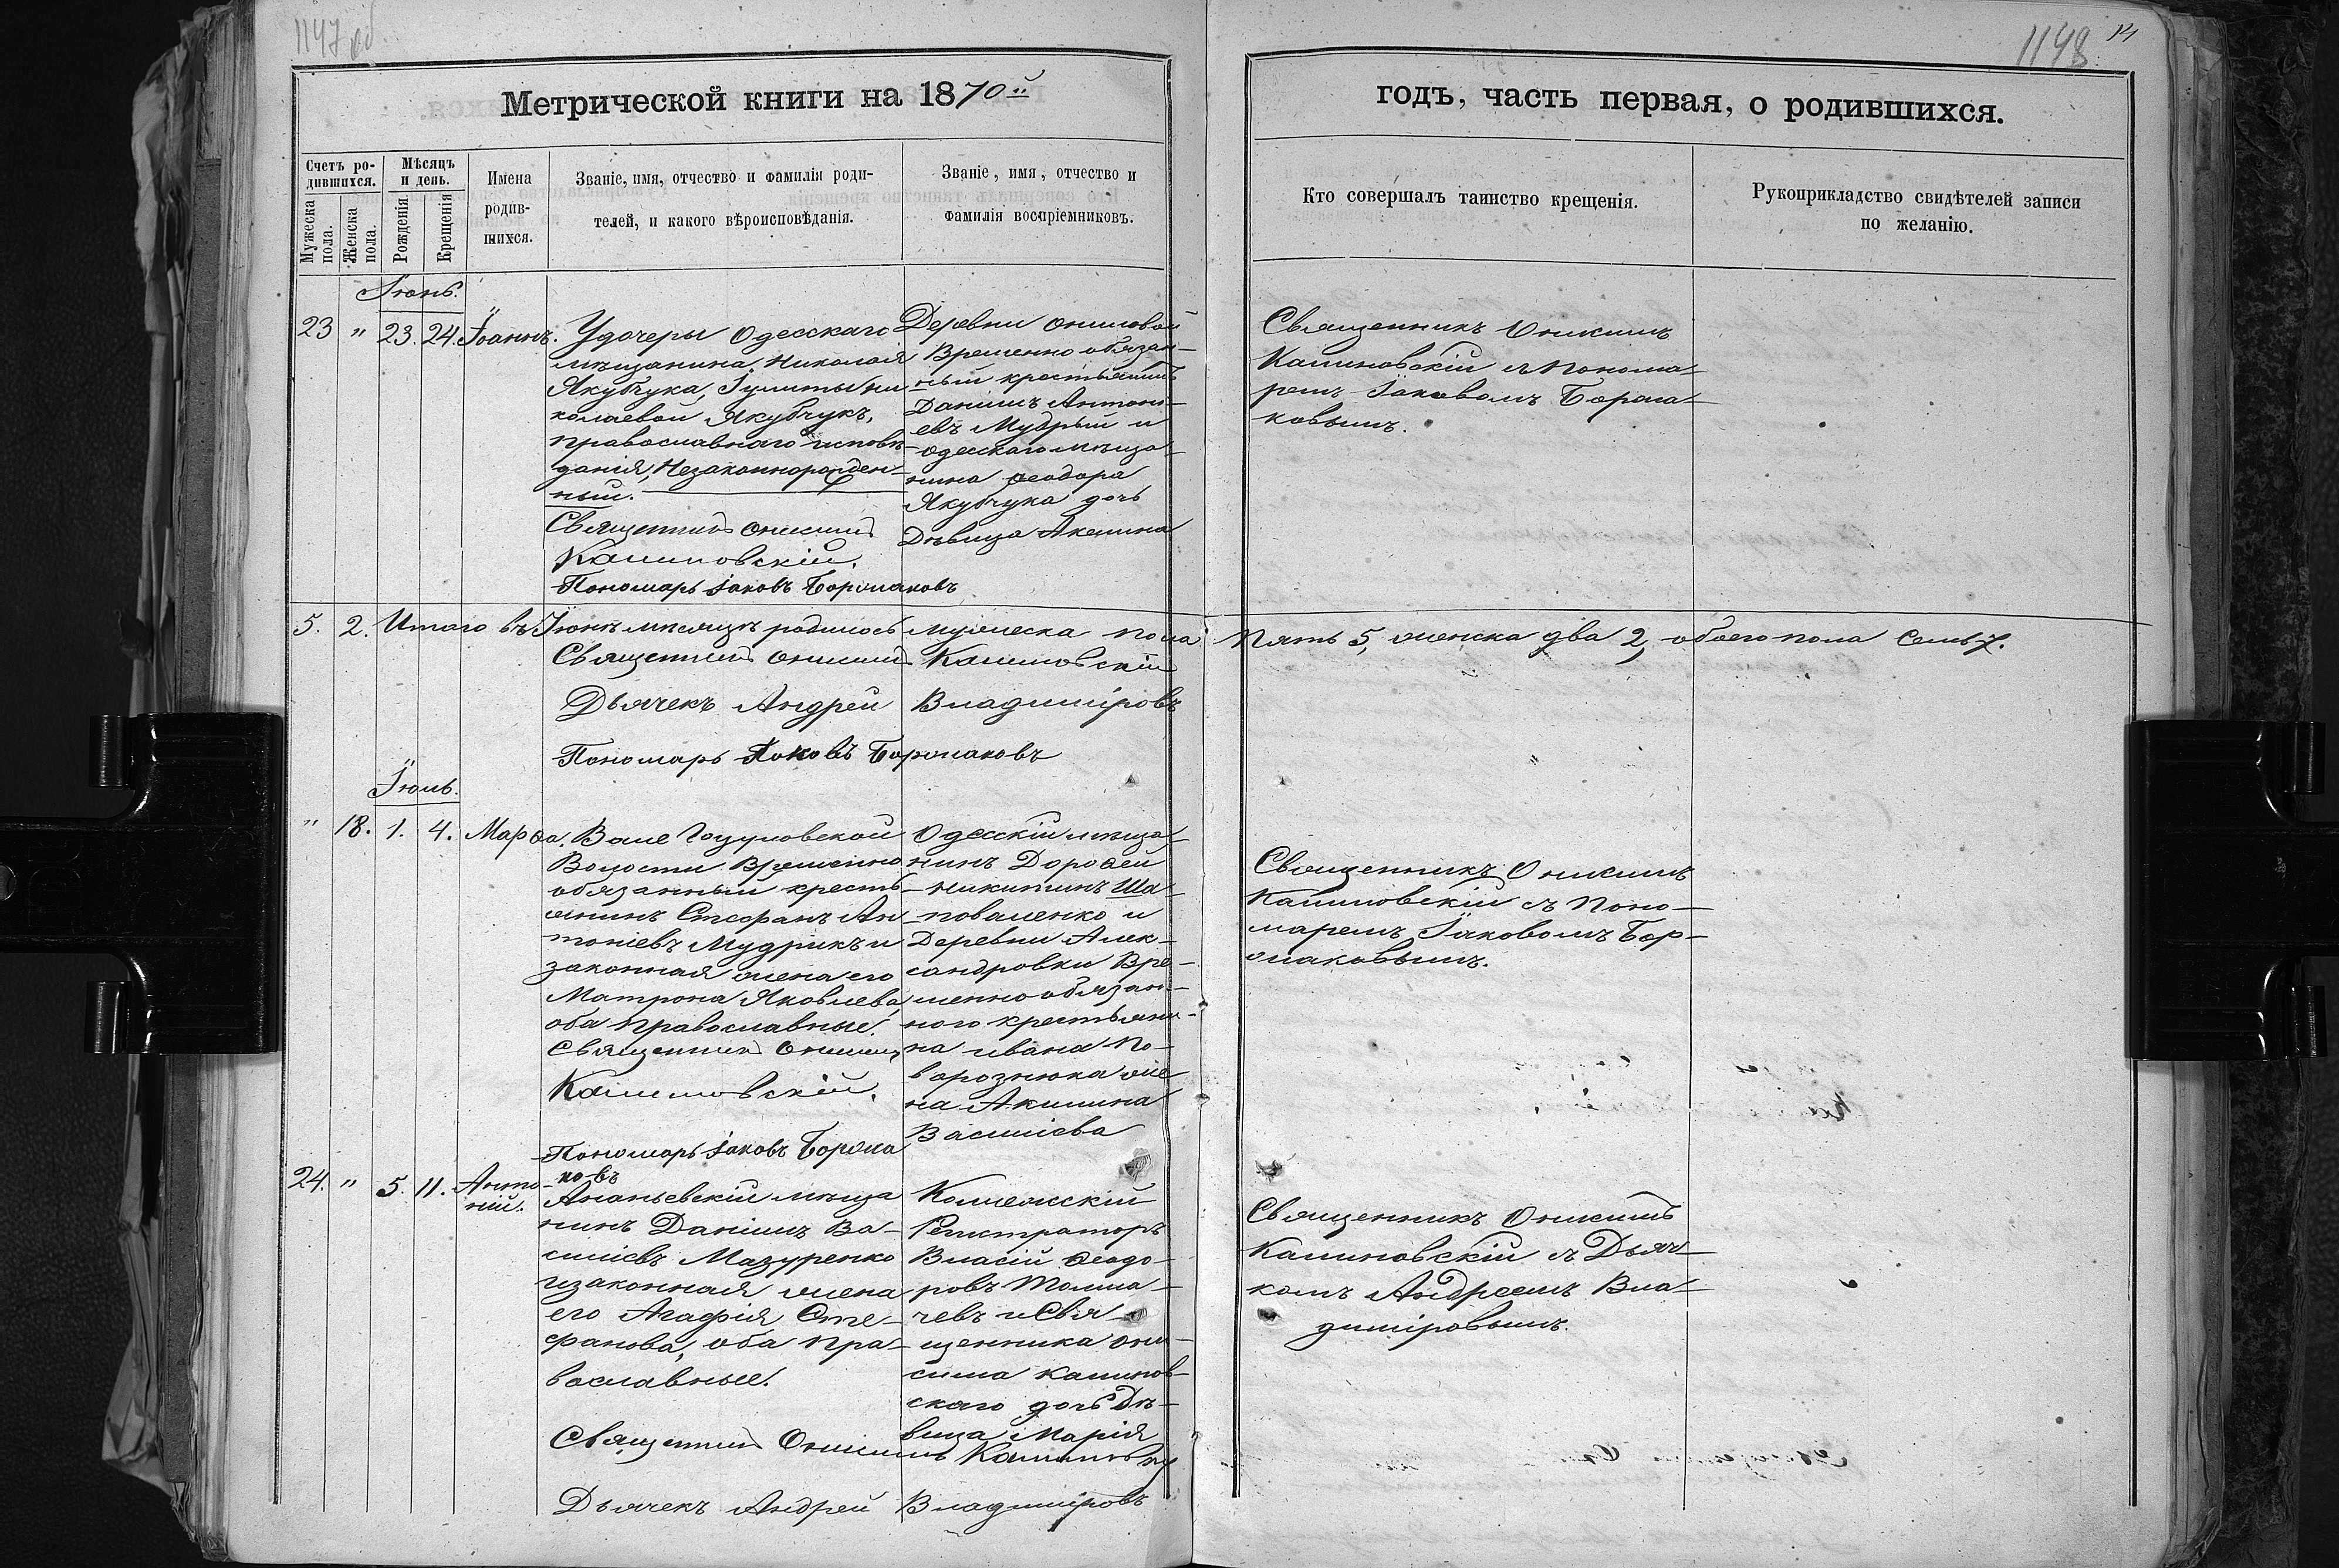 1147 об
1148
14
Метрической книги на 1870й
годъ, часть первая, о родившихся.
Счетъ ро-
дившихся.
Мужеска
пола.
Женска
пола.
Мѣсяцъ
и день.
Рожденія.
Крещенія
Имена
родив-
шихся.
Званіе, имя, отчество и фамилія роди-
телей, и какого вѣроисповѣданія.
Званіе, имя, отчество и
фамилія воспріемниковъ.
Кто совершалъ таинство крещенія.
Рукоприкладство свидѣтелей записи
по желанію.
Іюнь.
23 " 23. 24. Іоаннъ.
Удочеры Одесскаго
мѣщанина Николая
Якубчука, Іулиты Ни
колаевой Якубчукъ,
православнаго исповѣ-
данія, Незаконнорожден-
ный.
Священникъ Онисимъ
Калиновскій.
Пономарь Іаковъ Боржаковъ
Деревни
Временно обязан-
ный крестьянинъ
Даніилъ Антоні-
евъ Мудрый и
одесскаго мѣща-
нина Ѳеодора
Якубчука дочь
Дѣвица Акелина
Священникъ Онисимъ
Калиновскій съ Понома-
ремъ Іаковомъ Боржа-
ковымъ.
5. 2. Итого въ Іюнѣ мѣсяцѣ родилось мужеска пола пять 5, женска два 2, обоего пола семь 7.
Священникъ Онисимъ Калиновскій
Дьячекъ Андрей Владиміровъ
Пономарь Яковъ Боржаковъ
Іюль.
" 18. 1. 4. Марѳа.
Волости Временно
обязанный кресть-
янинъ Стефанъ Ан
тоніевъ Мудрикъ и
законная жена его
Матрона Яковлева,
оба православные.
Священникъ Онисимъ
Калиновскій.
Пономарь Іаковъ Боржа
ковъ
Одесскій мѣща-
нинъ Дороѳей
Никитинъ Ша-
поваленко и
Деревни Алек-
сандровки Вре-
менно обязан-
ного крестьяни-
на Ивана По-
ворознюка же
на Акилина
Василіева
Священникъ Онисимъ
Калиновскій съ Поно-
маремъ Іаковомъ Бор-
жаковымъ.
24. " 5. 11. Анто-
ній.
Ананьевскій мѣща
нинъ Даніилъ Ва-
силіевъ Мазуренко
и законная жена
его Агафія Сте-
фанова, оба пра-
вославные.
Священникъ Онисимъ Калиновскій
Дьячекъ Андрей Владиміровъ
Коллежскій
Регистраторъ
Власій Ѳеодо-
ровъ Толма-
чевъ и Свя-
щенника Они-
сима Калинов-
скаго дочь Дѣ-
вица Марія
Священникъ Онисимъ
Калиновскій съ Дьяч-
комъ Андреемъ Вла-
диміровымъ.